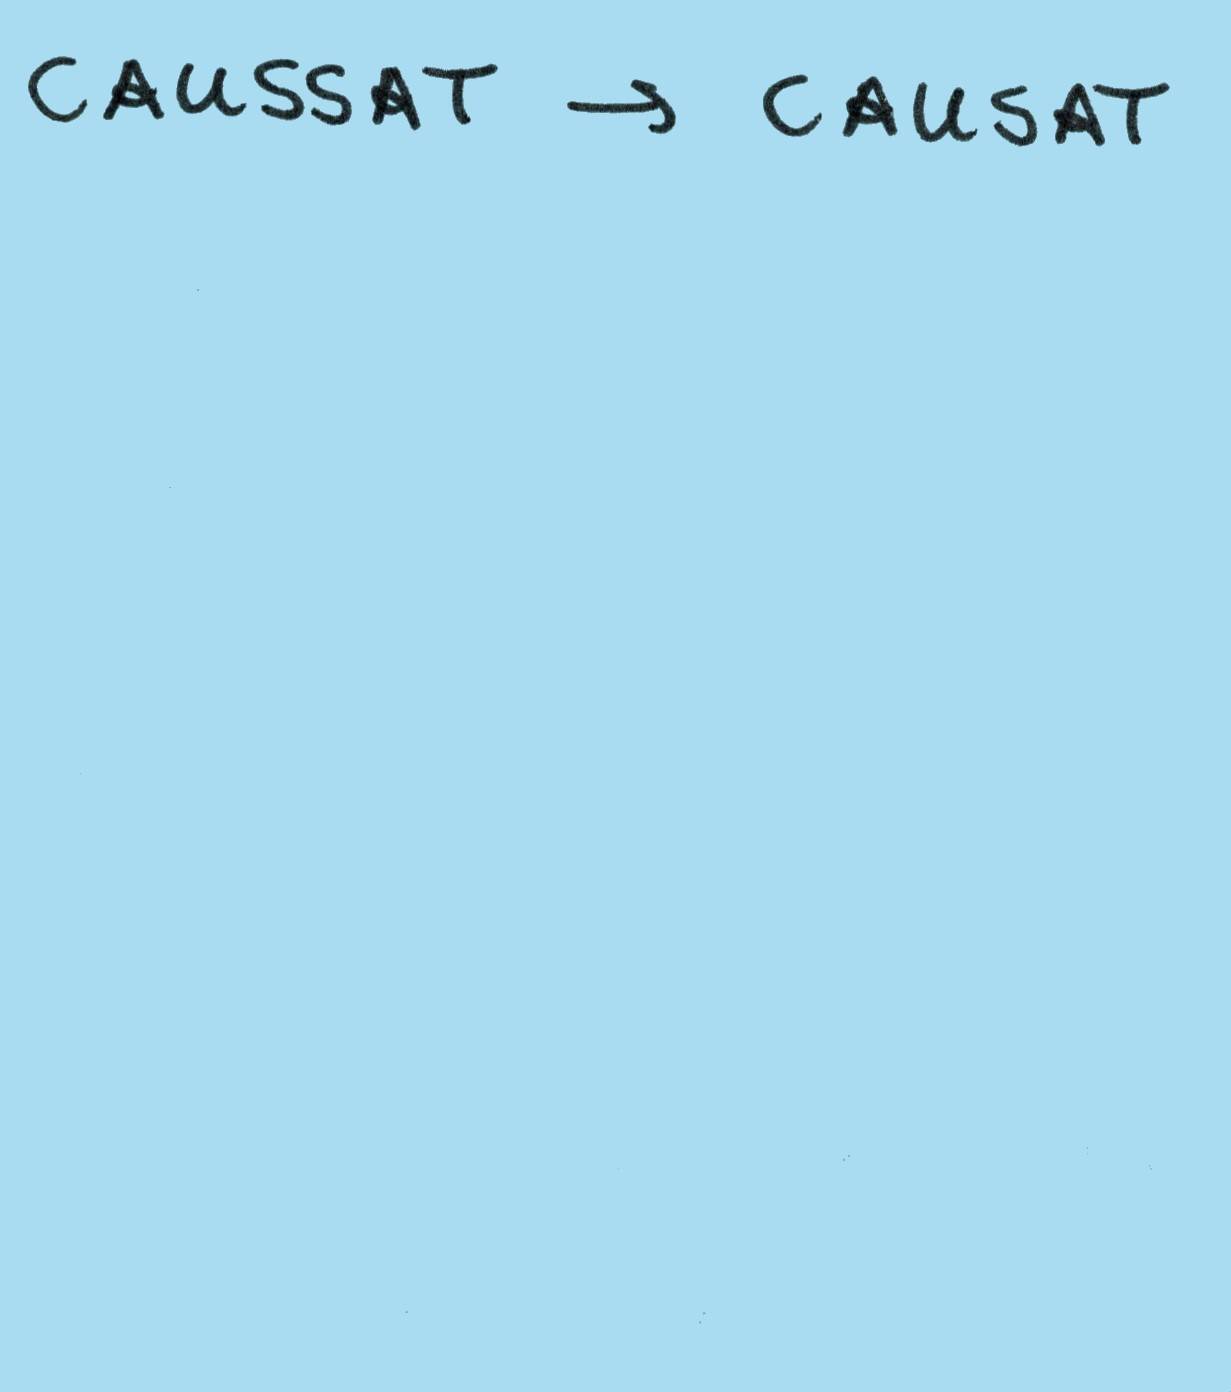 CAUSSAT → CAUSAT